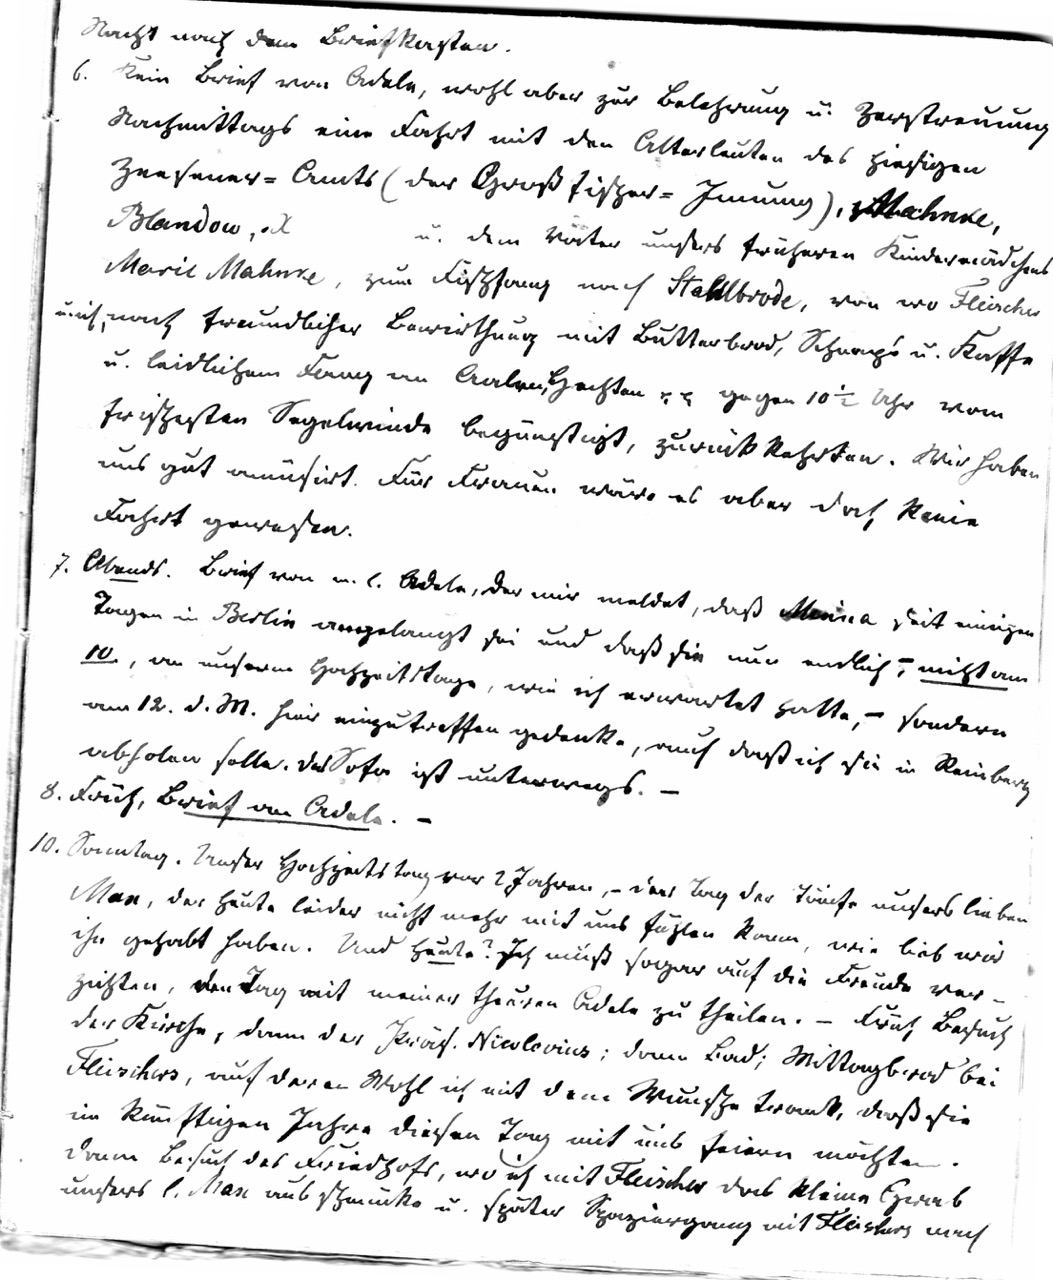 Nacht nach dem Briefkasten.
6. Kein Brief von Adele, wohl aber zur Belehrung u. Zerstreuung
Nachmittags eine Fahrt mit den Alterleuten des hiesigen
Zeesener-Amts (der Großfischer-Innung), Mahnke,
Blandow, u. dem Vater unsers früheren Kindermädchens
Marie Mahnke, zum Fischfang nach Stahlbrode, von wo Fleischer
mich, nach freundlicher Bewirthung mit Butterbrod, Schnaps u. Kaffe
u. leidlichem Fang an Aalen, Hechten gegen 10 1/2 Uhr vom
frischesten Segelwinde begünstigt, zurück kehrten. Wir haben
uns gut amüsirt. Für Frauen wäre es aber doch keine
Fahrt gewesen.
7. Abends. Brief von m. l. Adele, der mir meldet, daß Minna seit einigen
Tagen in Berlin angelangt sei und daß sie nun endlich, nicht am
10., an unserm Hochzeitstage, wie ich erwartet hatte, – sondern
am 12. d. M. hier einzutreffen gedenke, auch daß ich sie in Reinberg
abholen solle. Das Sofa ist unterwegs. –
8. Früh, Brief an Adele. –
10. Sonntag. Unser Hochzeitstag vor 2 Jahren, – der Tag der Taufe unsers lieben
Max, der heute leider nicht mehr mit uns fühlen kann, wie lieb wir
ihn gehabt haben. Und heute? Ich muß sogar auf die Freude ver-
zichten, den Tag mit meiner theuren Adele zu theilen. – Früh, Besuch
der Kirche, dann der Präs. Nicolovius; dann Bad; Mittagbrod bei
Fleischers, auf deren Wohl ich mit dem Wunsche trank, daß sie
im künftigen Jahre diesen Tag mit uns feiern möchten.
Dann Besuch des Friedhofs, wo ich mit Fleischer das kleine Grab
unsers l. Max ausschmücke u. später Spaziergang mit Fleischers nach